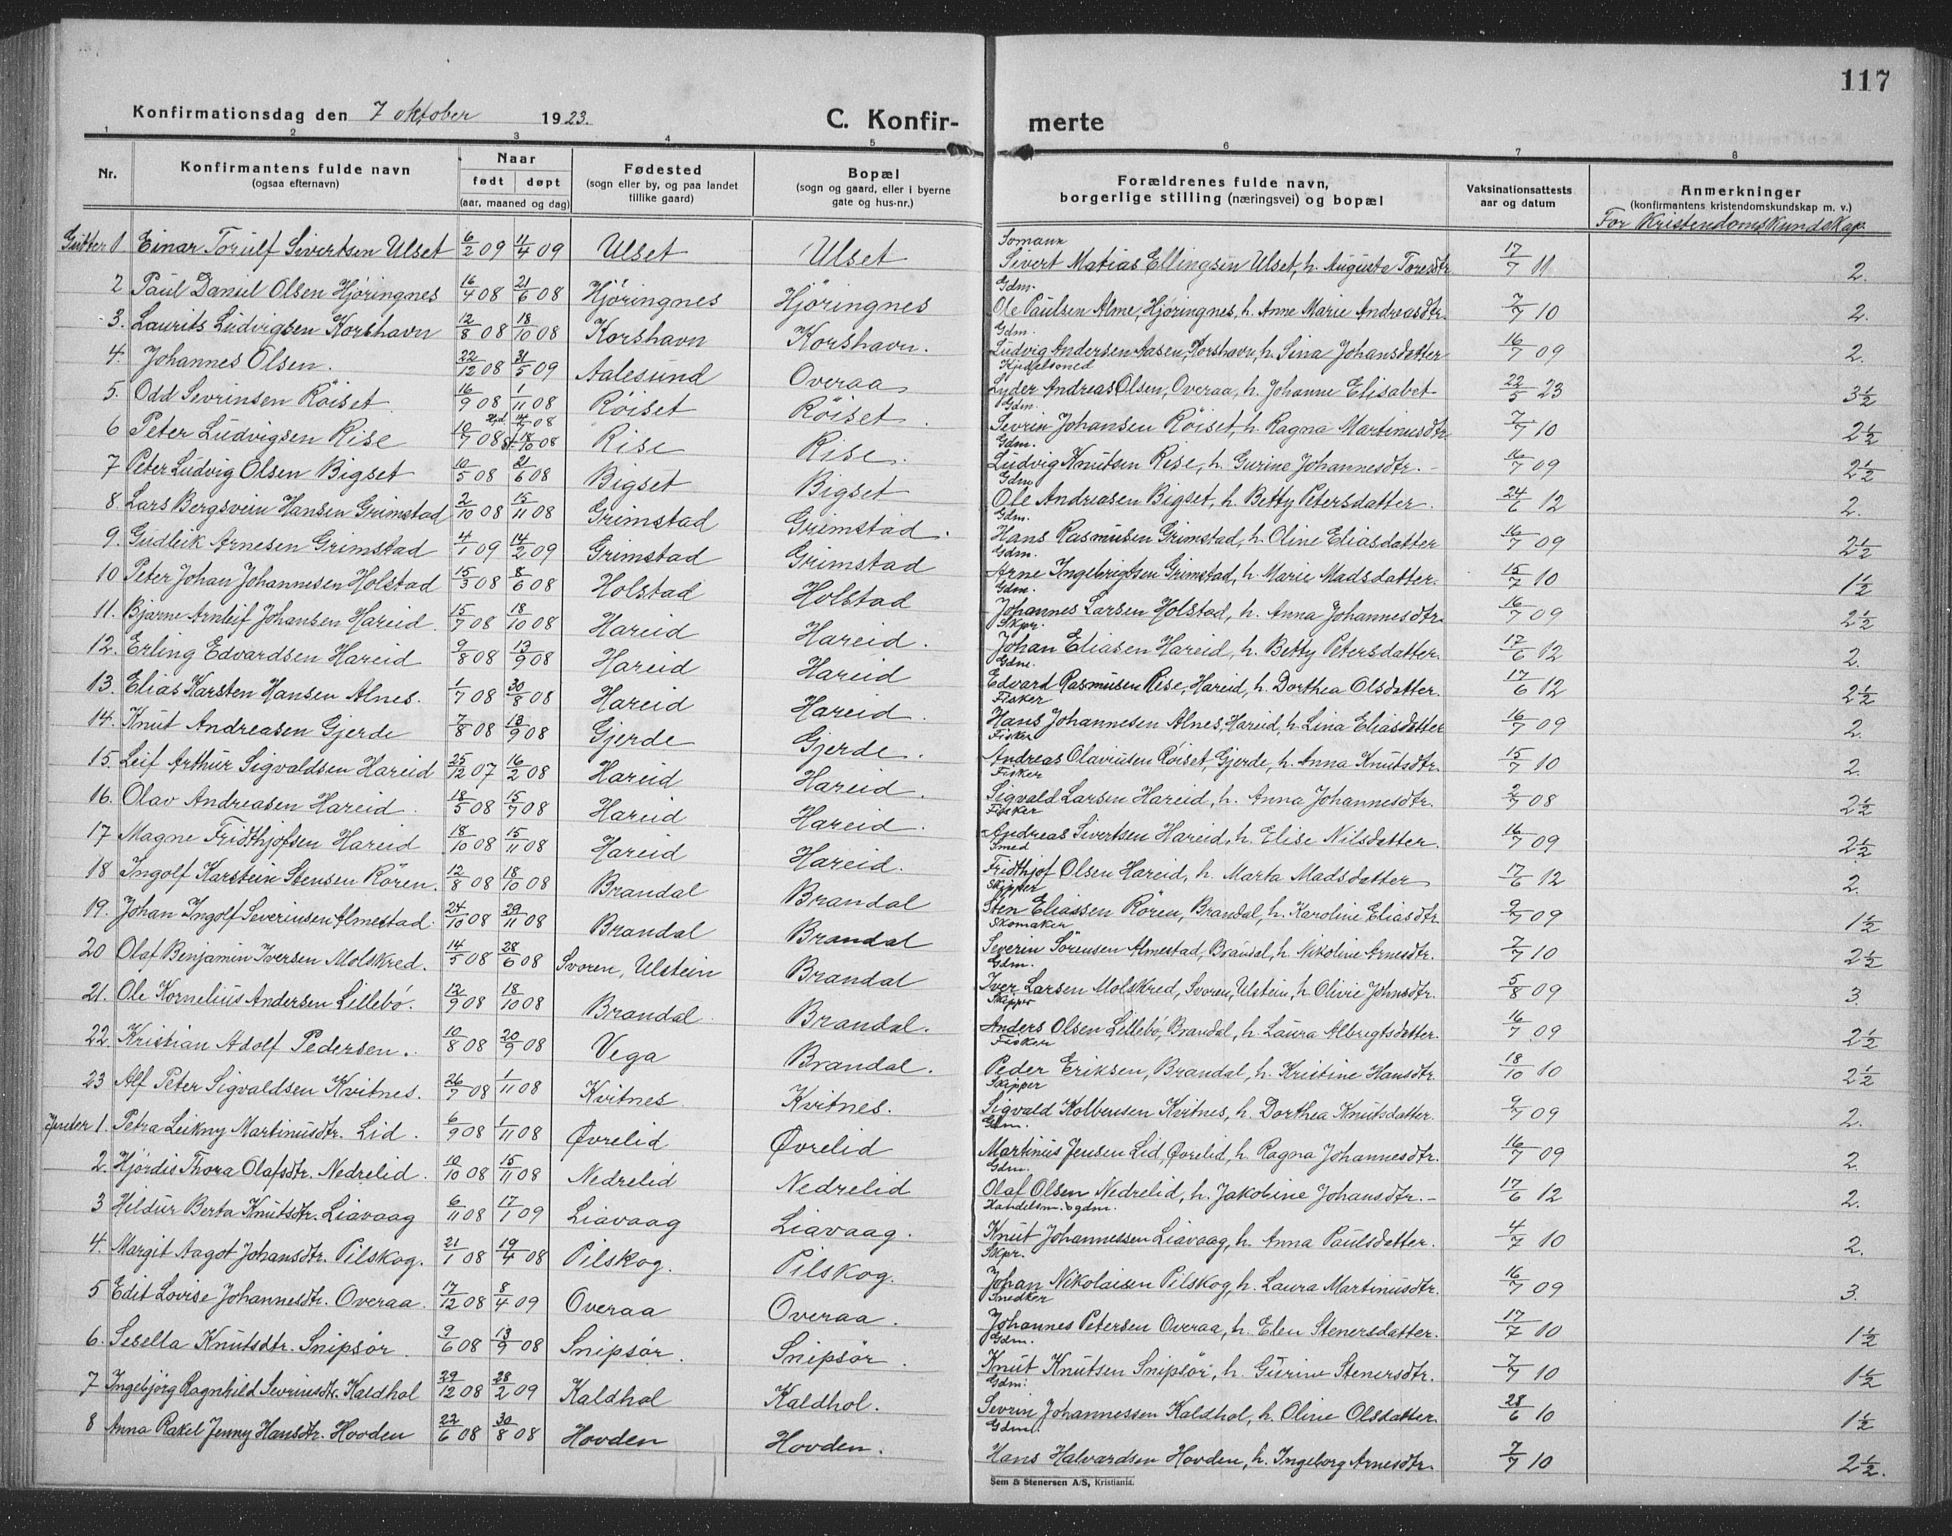 117
Konfirmationsdag den 7 oktober 1923. C. Konfir- merte
1 2 3 4 5 6 7 8
Nr. Konfirmantens fulde navn (ogsaa efternavn) Naar født døpt (aar, maaned og dag) Fødested (sogn eller by, og paa landet tillike gaard) Bopæl (sogn og gaard, eller i byerne gate og hus-nr.) Forældrenes fulde navn, borgerlige stilling (næringsvei) og bopæl Vaksinationsattests aar og datum Anmerkninger (konfirmantens kristendomskundskap m. v.)
For Kristendomskundskap
Gutter 1 Einar Torulf Sivertsen Ulset 6/2 09 4/4 09 Ulset Ulset Somann Sivert Matias Ellingsen Ulset, h. Augusta Toresdtr 17/7 11 2.
2 Paul Daniel Olsen Hjöringnes 16/4 08 21/6 08 Hjöringnes Hjöringnes Gdm. Ole Paulsen Alme, Hjöringnes, h. Anne Marie Andreasdtr. 7/7 10 2.
3. Laurits Ludvigsen Korshavn 12/8 08 18/10 08 Korshavn Korshavn. Gdm. Ludvig Andersen Aasen, Korshavn, h. Sina Johansdatter 16/7 09 2.
4. Johannes Olsen. 22/12 08 31/5 09 Aalesund Overaa Kjedelsmed Lyder Andreas Olsen, Overaa, h. Johanne Elisabet 22/5 23 3 1/2
5. Odd Sevrinsen Röiset 16/9 08 1/11 08 Röiset Röiset. Gdm. Sevrin Johansen Röiset, h. Ragna Martinusdtr 7/7 10 2 1/2
6 Peter Ludvigsen Rise 10/7 08 18/10 08 Rise Rise. Gdm. Ludvig Knutsen Rise, h. Gurine Johannesdtr. 16/7 09 2 1/2
7 Peter Ludvig Olsen Bigset 10/5 08 21/6 08 Bigset Bigset Gdm Ole Andreasen Bigset, h. Betty Petersdatter. 24/6 12 2.
8. Lars Bergsvein Hansen Grimstad 2/10 08 15/11 08 Grimstad Grimstad. Gdm. Hans Rasmusen Grimstad, h. Oline Eliasdatter 16/7 09 2 1/2
9. Gudleik Arnesen Grimstad 4/1 09 14/2 09 Grimstad Grimstad Gdm. Arne Ingebrigtsen Grimstad, h. Marie Madsdatter. 15/7 10 1 1/2
10 Peter Johan Johannesen Holstad 15/3 08 8/6 08 Holstad Holstad Gdm. Johannes Larsen Holstad, h. Anna Johannesdtr. 16/7 09 2 1/2
11. Bjarne Arnleif Johansen Hareid. 15/7 08 18/10 08 Hareid Hareid. Skpr. Johan Eliasen Hareid, h. Betty Petersdatter. 17/6 12 2.
12. Erling Edvardsen Hareid 9/8 08 13/9 08 Hareid Hareid Gdm. Edvard Rasmusen Rise, Hareid, h. Dorthea Olsdatter. 17/6 12 2 1/2
13. Elias Karsten Hansen Alnes. 1/7 08 30/8 08 Hareid Hareid. Fisker Hans Johannesen Alnes, Hareid, h. Lina Eliasdatter 16/7 09 2.
14. Knut Andreasen Gjerde 7/8 08 13/9 08 Gjerde Gjerde. Fisker Andreas Olaviusen Röiset, Gjerde, h. Anna Knutsdtr. 15/7 10 2.
15. Leif Arthur Sigvaldsen Hareid 25/12 07 16/2 08 Hareid Hareid. Fisker Sigvald Larsen Hareid, h. Anna Johannesdtr. 2/7 08 2 1/2
16. Olav Andreasen Hareid. 18/5 08 15/7 08 Hareid Hareid. Fisker Andreas Sivertsen Hareid, h. Elise Nilsdatter. 16/7 09 2 1/2
17 Magne Fridthjofsen Hareid 18/10 08 15/11 08 Hareid Hareid. Smed Fridthjof Olsen Hareid, h. Marta Madsdatter 17/6 12 2.
18 Ingolf Karstein Stensen Rören. 12/8 08 18/10 08 Brandal Brandal Skipper Sten Eliassen Rören, Brandal, h. Karoline Eliasdtr. 9/7 09 1 1/2
19. Johan Ingolf Severinsen Almestad. 24/10 08 29/11 08 Brandal Brandal Skomaker Severin Sörensen Almestad, Brandal, h. Nikoline Arnesdtr. 7/7 10 2 1/2
20 Olaf Benjamin Iversen Molskred. 14/5 08 28/6 08 Svoren, Ulstein Brandal Gdm. Iver Larsen Molskred, Svoren, Ulstein, h. Olivie Johnsdtr. 5/8 09 3.
21. Ole Kornelius Andersen Lillebö. 12/9 08 18/10 08 Brandal Brandal. Skipper Anders Olsen Lillebö, Brandal, h. Laura Albregtsdatter. 16/7 09 2 1/2
22. Kristian Adolf Pedersen. 10/8 08 20/9 08 Vega Brandal. Fisker Peder Eriksen, Brandal, h. Kristine Hansdtr. 18/10 10 2 1/2
23 Alf Peter Sigvaldsen Kvitnes. 26/7 08 1/11 08 Kvitnes Kvitnes. Skipper Sigvald Kolbensen Kvitnes, h. Dorthea Knutsdatter. 9/7 09 2.
Jenter 1. Petra Leikny Martinusdtr. Lid. 6/9 08 1/11 08 Øvrelid Øvrelid Gdm. Martinus Jensen Lid, Øvrelid, h. Ragna Johannesdtr. 16/7 09 2.
2. Hjördis Thora Olafsdtr. Nedrelid. 10/10 08 15/11 08 Nedrelid Nedrelid Gdm. Olaf Olsen Nedrelid, h. Jakobine Johansdtr. 17/6 12 2.
3 Hildur Berta Knutsdtr. Liavaag 6/11 08 17/1 09 Liavaag Liavaag. Handelsm. & gdm. Knut Johannessen Liavaag, h. Anna Paulsdatter. 4/7 10 2.
4. Margit Aagot Johansdtr. Pilskog. 21/1 08 19/4 08 Pilskog. Pilskog. Skpr. Johan Nikolaisen Pilskog, h. Laura Martinusdtr. 16/7 09 3.
5 Edit Lovise Johannesdtr. Overaa. 17/12 08 8/4 09 Overaa Overaa. Snedker Johannes Petersen Overaa, h. Elen Stenersdatter. 17/7 10 1 1/2
6. Sesella Knutsdtr. Snipsör. 9/6 08 13/9 08 Snipsör. Snipsör. Gdm. Knut Knutsen Snipsör, h. Gurine Stenersdtr. 7/7 10 1 1/2
7 Ingebjörg Ragnhild Sevrinsdtr. Kaldhol 29/12 08 28/2 09 Kaldhol Kaldhol. Gdm. Sevrin Johannessen Kaldhol, h. Oline Olsdatter. 28/6 10 1 1/2
8 Anna Rakel Jenny Hansdtr. Hovden 22/6 08 30/8 08 Hovden Hovden. Gdm. Hans Halvardsen Hovden, h. Ingeborg Arnesdtr. 7/7 10 2 1/2.
Sem & Stenersen A/S, Kristiania.